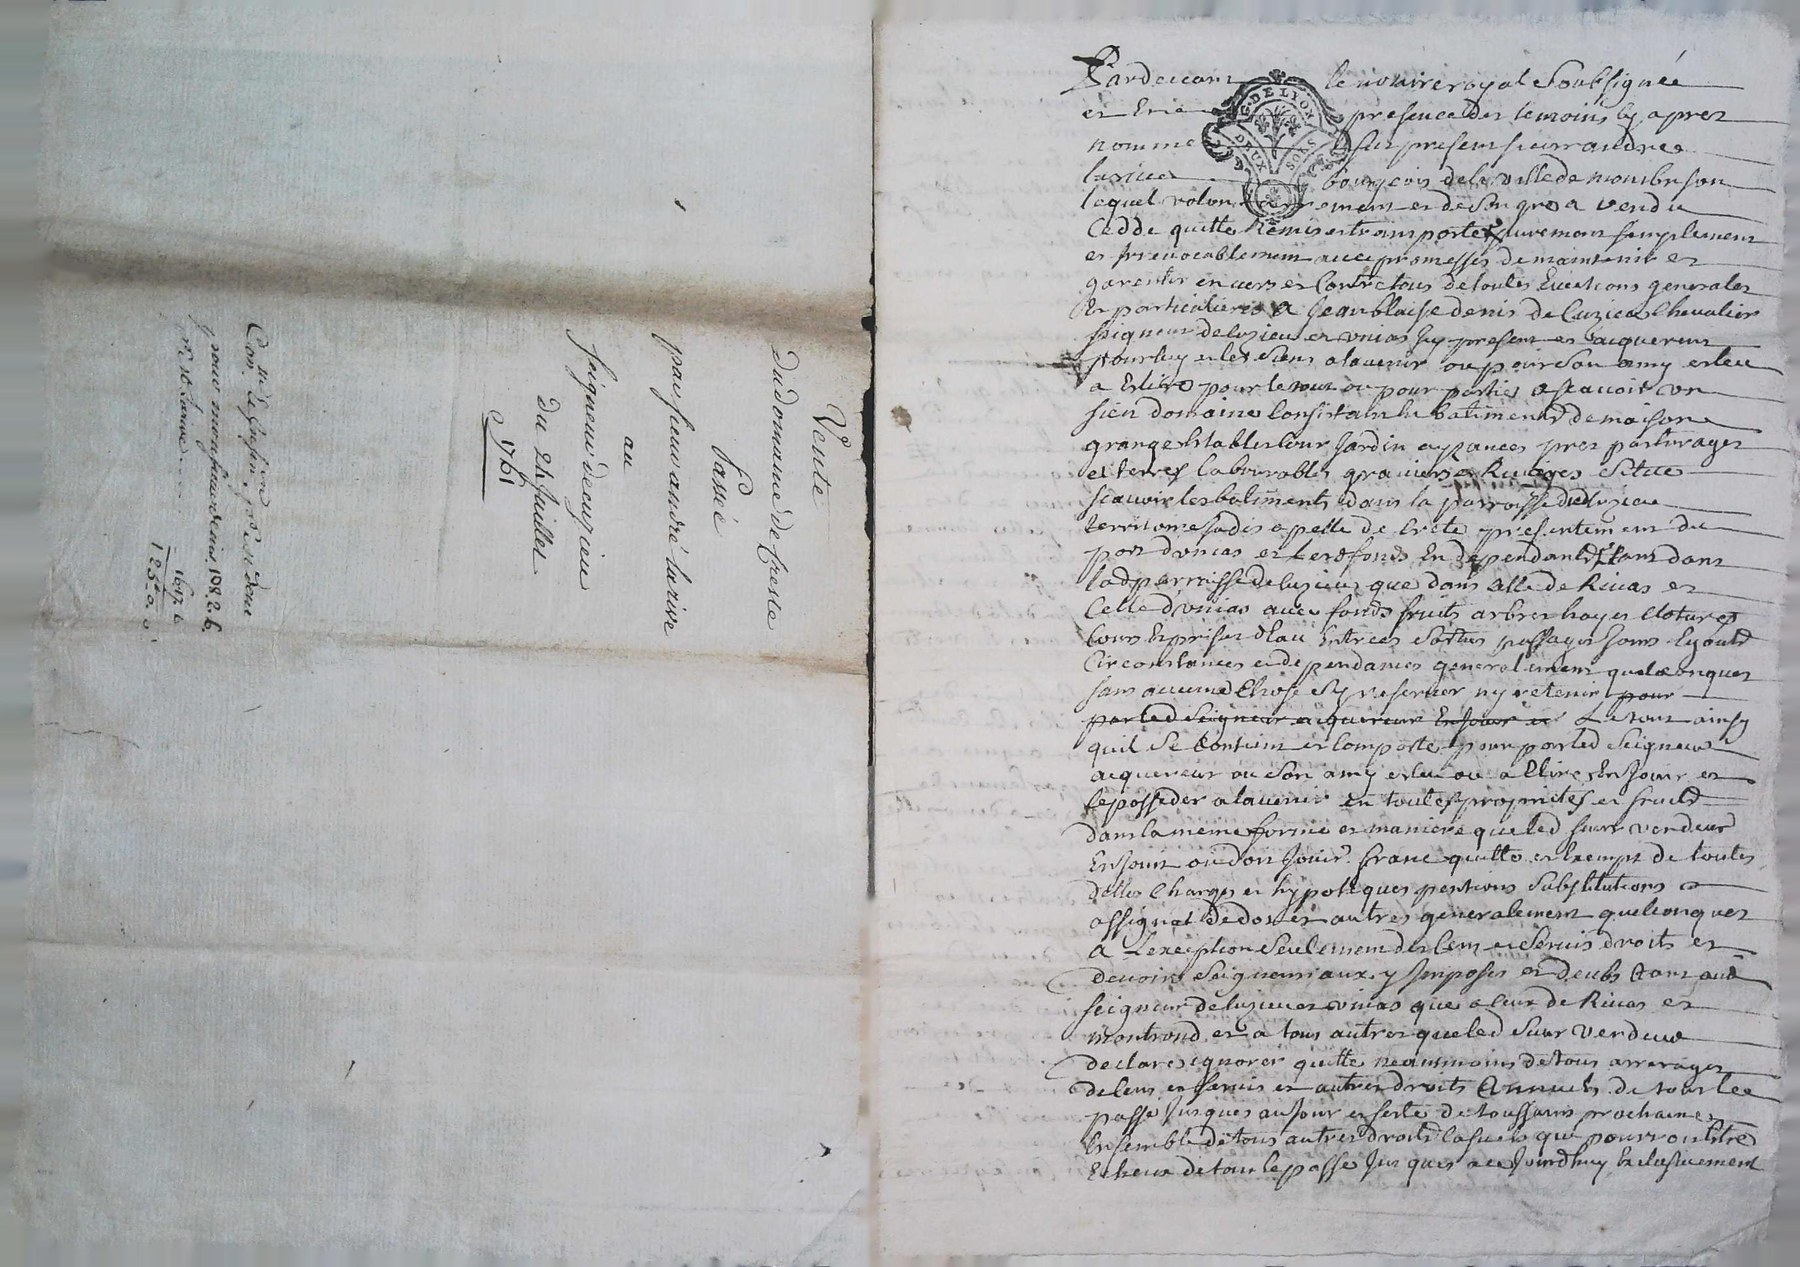 Vente
du domaine de Creste
Passée
par sieur andré larive
au
seigneur de cuzieu
du 24 Juillet
1761
Con.on de lusson
pour monsieur denis 198.2.6
1250.0.0
G. DE LYON
DEUX SOLS
Pardevant le notaire royal Soubsignée
et En presence des temoins cy aprez
nomme fut present sieur andrée
larive bourgeois de la ville de montbrison
lequel volontairement et de son gre a vendu
Cedde quitte Remis et transporte purement simplement
et irrevocablement avec promesses de maintenir et
garentir envers et Contre tous de toutes Evictions generales
Et particulieres A Jean blaise denis de Cuzieu Chevalier
seigneur de cuzieu et unias icy present et acquereur
pour luy et les siens a lavenir ou pour son amy esleu
a Eslire pour le tout ou pour parties ascavoir un
sien domaine Consistant en batiments de maison
grange Estables Cour Jardin ayzances prez pasturages
et terres labourables graviers et Rivieres situé
scavoir les batiments dans la parroisse de Cuzieu
territoire jadis apellé de Crete presentement du
port dunias et les fonds En dependants tant dans
lad parroisse de cuzieu que dans Celle de Rivas et
Celle dunias avec fonds fruits arbres hayes Clotures
Cours Et prises deau Entrées sorties passages
Circonstances et dependances generalement quelconques
sans aucune Chose sy reserver ny retenir pour
par led Seigneur acquereur En Jouir et Le tout ainsy
quil se Contient et Comporte pour par led Seigneur
acquereur ou son amy esleu ou a Elire En Jouir et
le posseder a lavenir En toutes proprietés et fruits
dans la meme forme et maniere que led sieur vendeur
En Jouit ou doit Jouir franc quitte et Exempt de toutes
dettes Charges et hypoteques pentions substitutions
assignat de dot et autres generalement quelconques
A Lexception seulement des Cens et servis droits et
devoirs seigneuriaux y Imposés et deubs tant aud
seigneur de cuzieu et unias que a Ceux de Rivas et
montrond et a tous autres que led sieur vendeur
declare ignorer quitte neanmoins de tous arrerages
de Cens et servis et autres droits annuels de tout le
passé Jusques au Jour et feste de toussaint prochaine
Ensemble de tous autres droits Casuels qui pourront Etre
Echeus de tout le passé Jusques a ce Jourdhuy Exclusivement